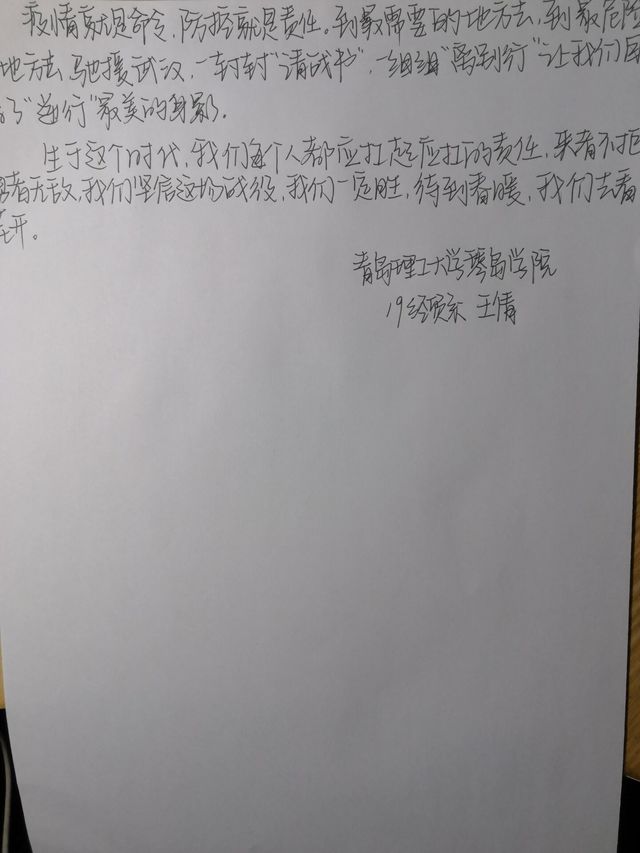 疫情就是命令,防控就是责任。到最需要的地方去,到最危险
地方去,驰援武汉,一封封"请战书",一组组"离别行"让我们
了"逆行"最美的身影。
生于这个时代,我们每个人都应扛起应扛的责任,英者不拒
者无敌,我们坚信这场战役,我们一定胜,待到春暖,我们去看
开。
青岛理工大学琴岛学院
19经贸系 王倩